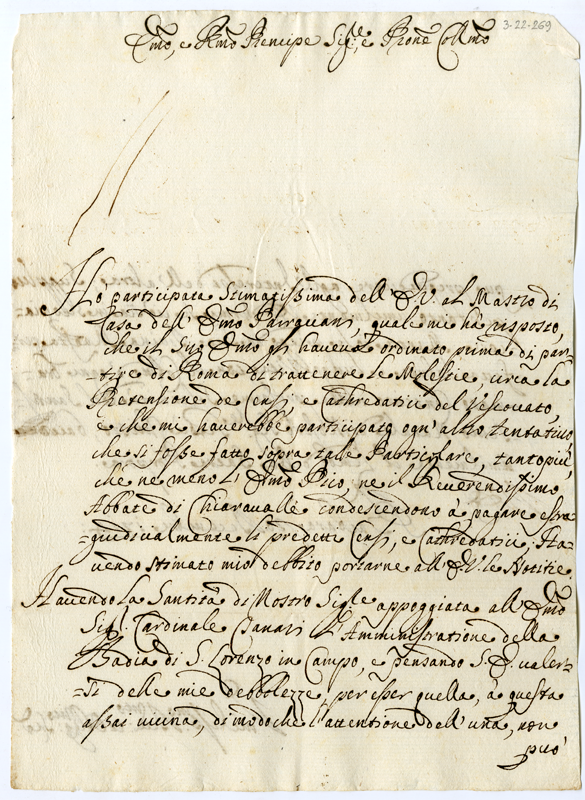 3-22-269
Emo, e Rmo Prencipe Sigre, e Prone Collmo
Hò participata Stimatissima dell'E.V. al Mastro di
Casa dell'Emo quale mi hà risposto,
che il Suo Emo gli haveva ordinato prima di par-
-tire di Roma di trattenere le Molestie, circa la
Pretensione de Censi e Cathredatici del Vescovato,
e che mi haverebbe participato ogn'altro tentativo
che si fosse fatto sopra tale Particolare, tanto più,
che ne meno l'Emo Pico, ne il Reverendissimo
Abbate di Chiaravalle condescendono à pagare estra
-giudicialmente li predetti Censi, e Cathredatici; Ha-
vendo stimato mio debbito portarne all'E.V. le Notitie.
Havendo la Santità di Nostro Sigre appoggiata all'Emo
Sigr Cardinale l'Amministratione della
Badia di S. Lorenzo in Campo, e pensando S.E. valer-
-si delle mie debbolezze, per esser quella, à questa
assai vicina, di modo che l'attentione dell'una, non
può